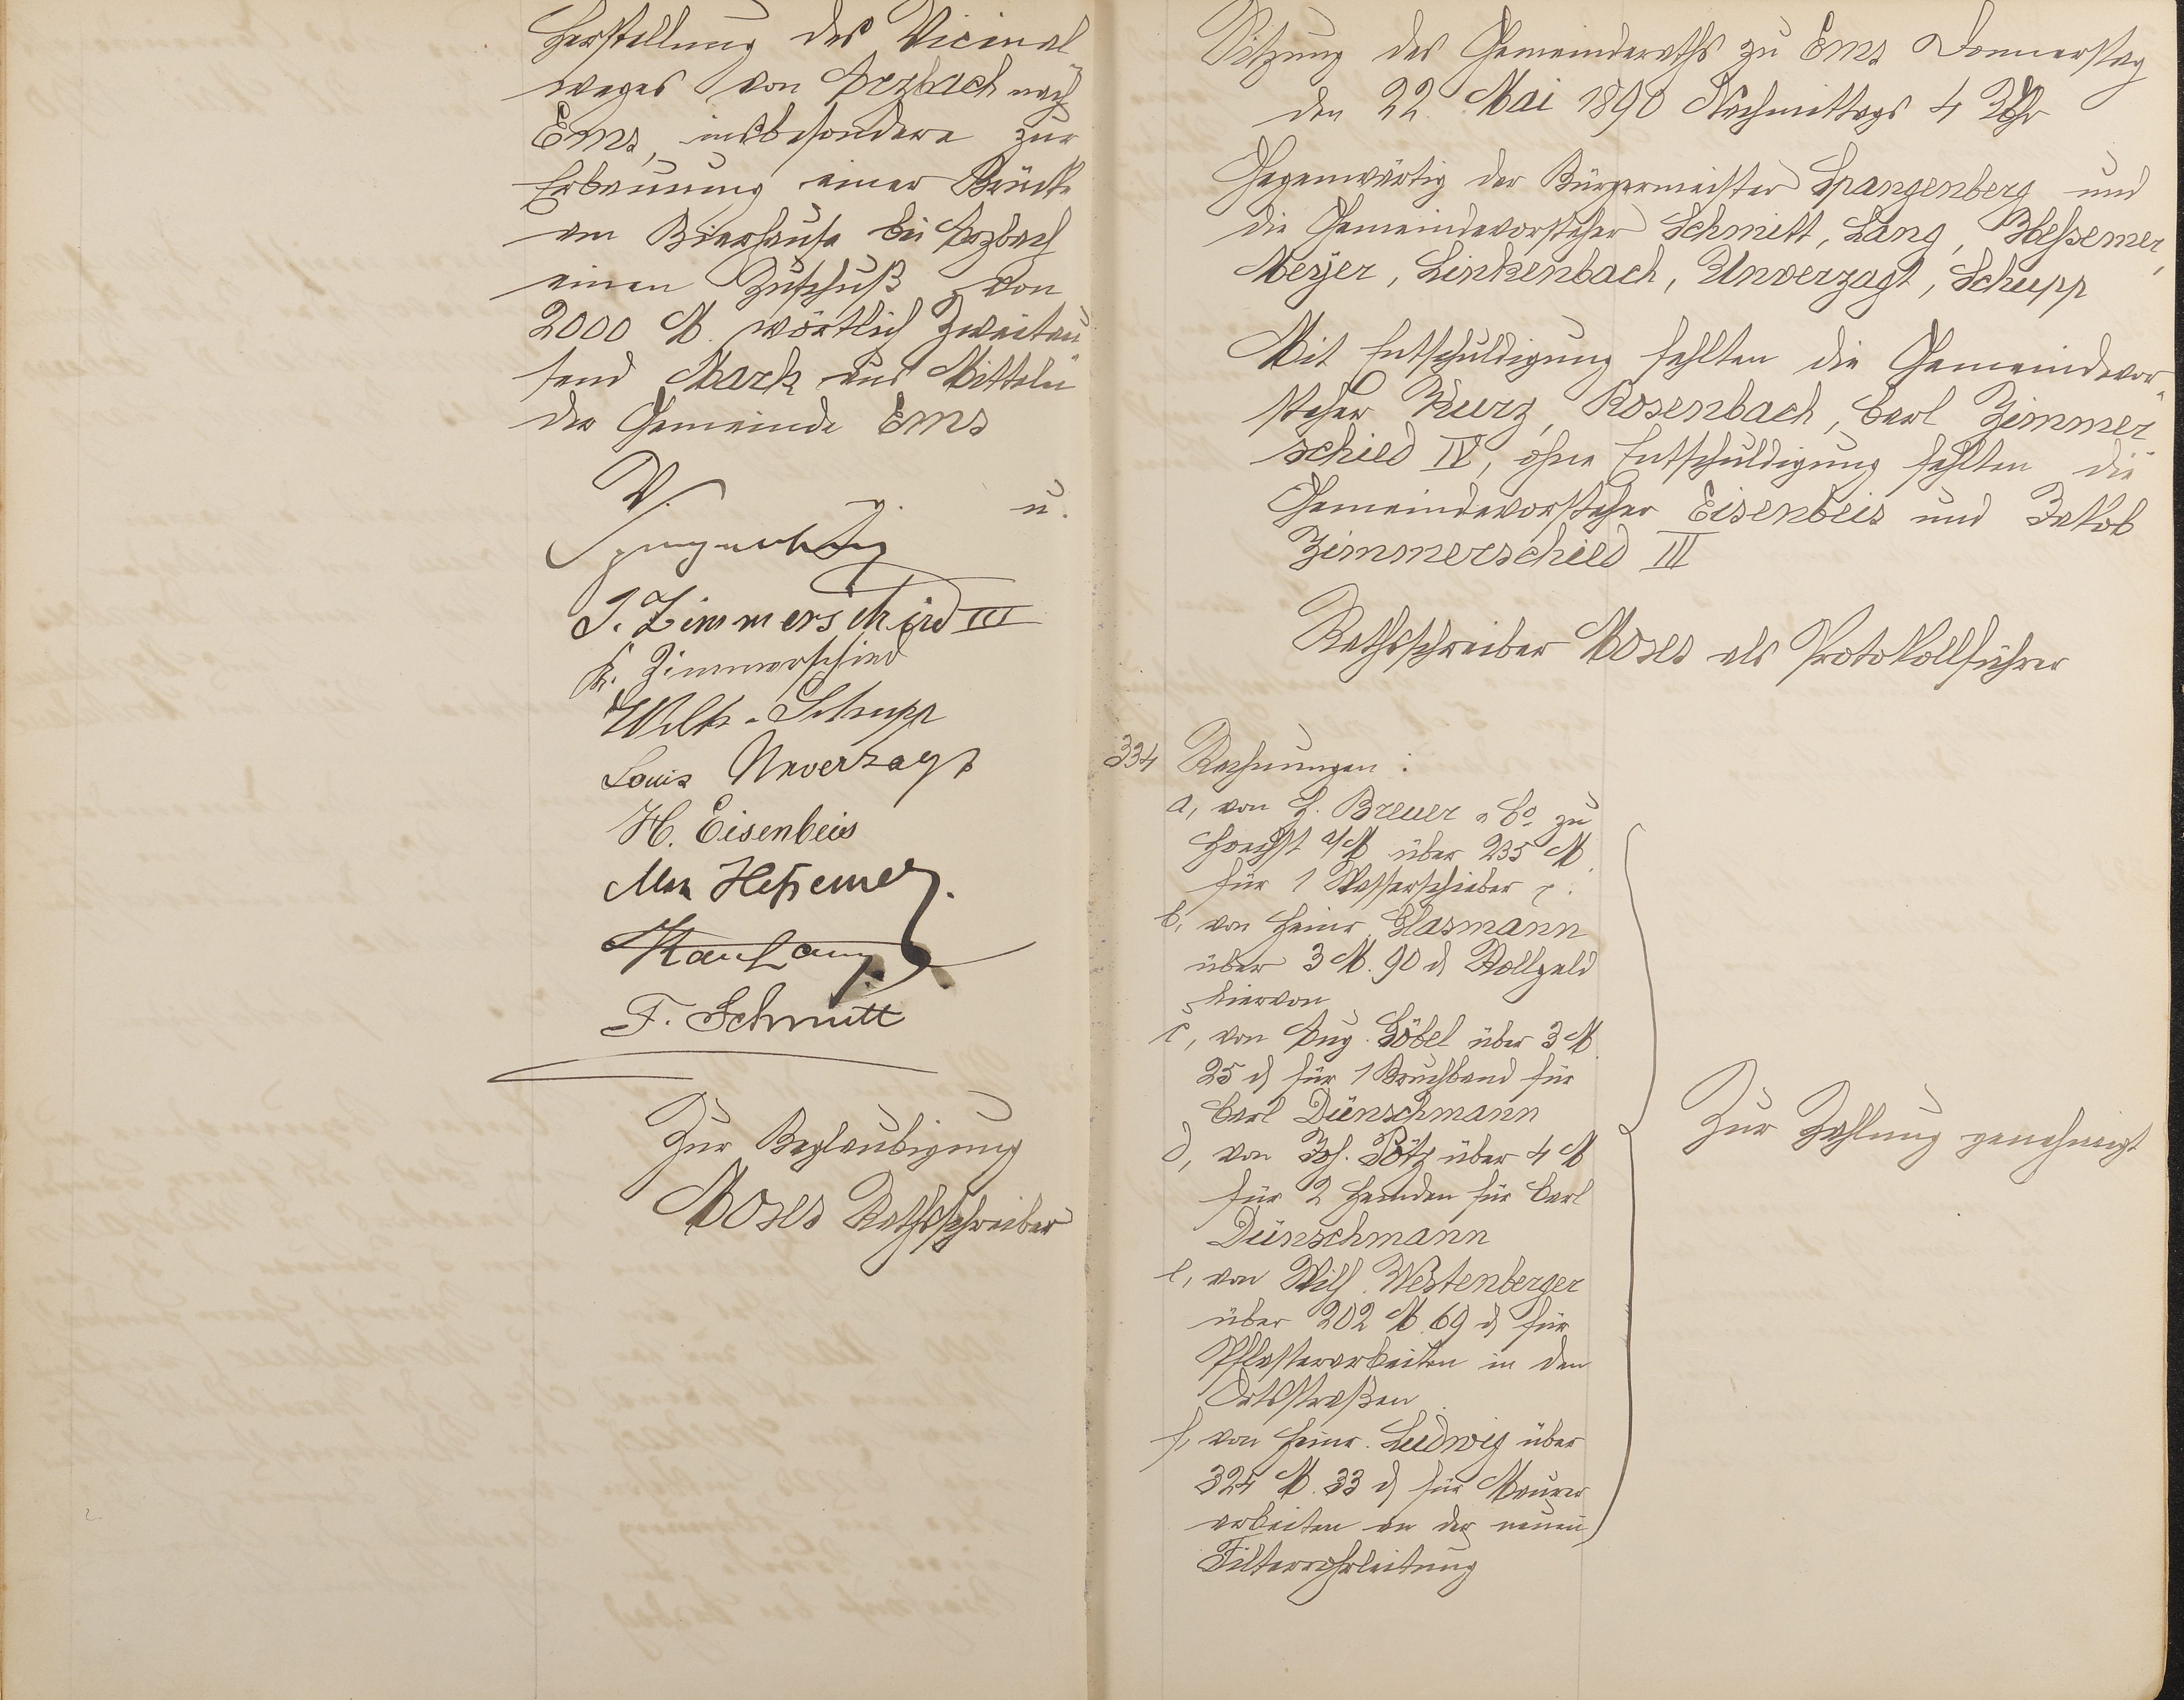 Herstellung des Vicinal
weges von Arzbach nach
Ems, insbesondere zur
Erbauung einer Brücke
am Bierhause bei Arzbach
einen Zuschuß von
2000 M. wörtlich Zweitau
send Mark aus Mitteln
der Gemeinde Ems
V. g. u.
Spangenberg
J. Zimmerschied III
K. Zimmerschied
Wilh. Schupp
Louis Unverzagt
H. Eisenbeis
Max Heßemer.
Karl Lang.
F. Schmitt
Zur Beglaubigung
Moses Rathsschreiber
Sitzung des Gemeinderaths zu Ems Donnerstag
den 22. Mai 1890 Nachmittags 4 Uhr
Gegenwärtig der Bürgermeister Spangenberg und
die Gemeindevorsteher Schmitt, Lang, Heßemer,
Meyer, Linkenbach, Unverzagt, Schupp
Mit Entschuldigung fehlten die Gemeindevor
steher Kurz, Rosenbach, Carl Zimmer
schied IV, ohne Entschuldigung fehlten die
Gemeindevorsteher Eisenbeis und Jakob
Zimmerschied III
Rathsschreiber Moses als Protokollführer
334 Rechnungen:
a, von H. Breuer & Co. zu
Hoechst a/M über 235 M
für 1 Wasserschieber
b, von Heinr. Glasmann
über 3 M. 90 ₰ Rollgeld
hiervon
c, von Aug. Göbel über 3 M.
25 ₰ für 1 Bruchband für
Carl Dünschmann
d, von Joh. Pötz über 4 M
für 2 Hemden für Carl
Dünschmann
e, von Wilh. Westenberger
über 202 M. 69 ₰ für
Pflasterarbeiten in den
Ortsstraßen
f, von Heinr. Ludwig über
324 M. 33 ₰ für Maurer
arbeiten an der neuen
Filterrohrleitung
Zur Zahlung genehmigt